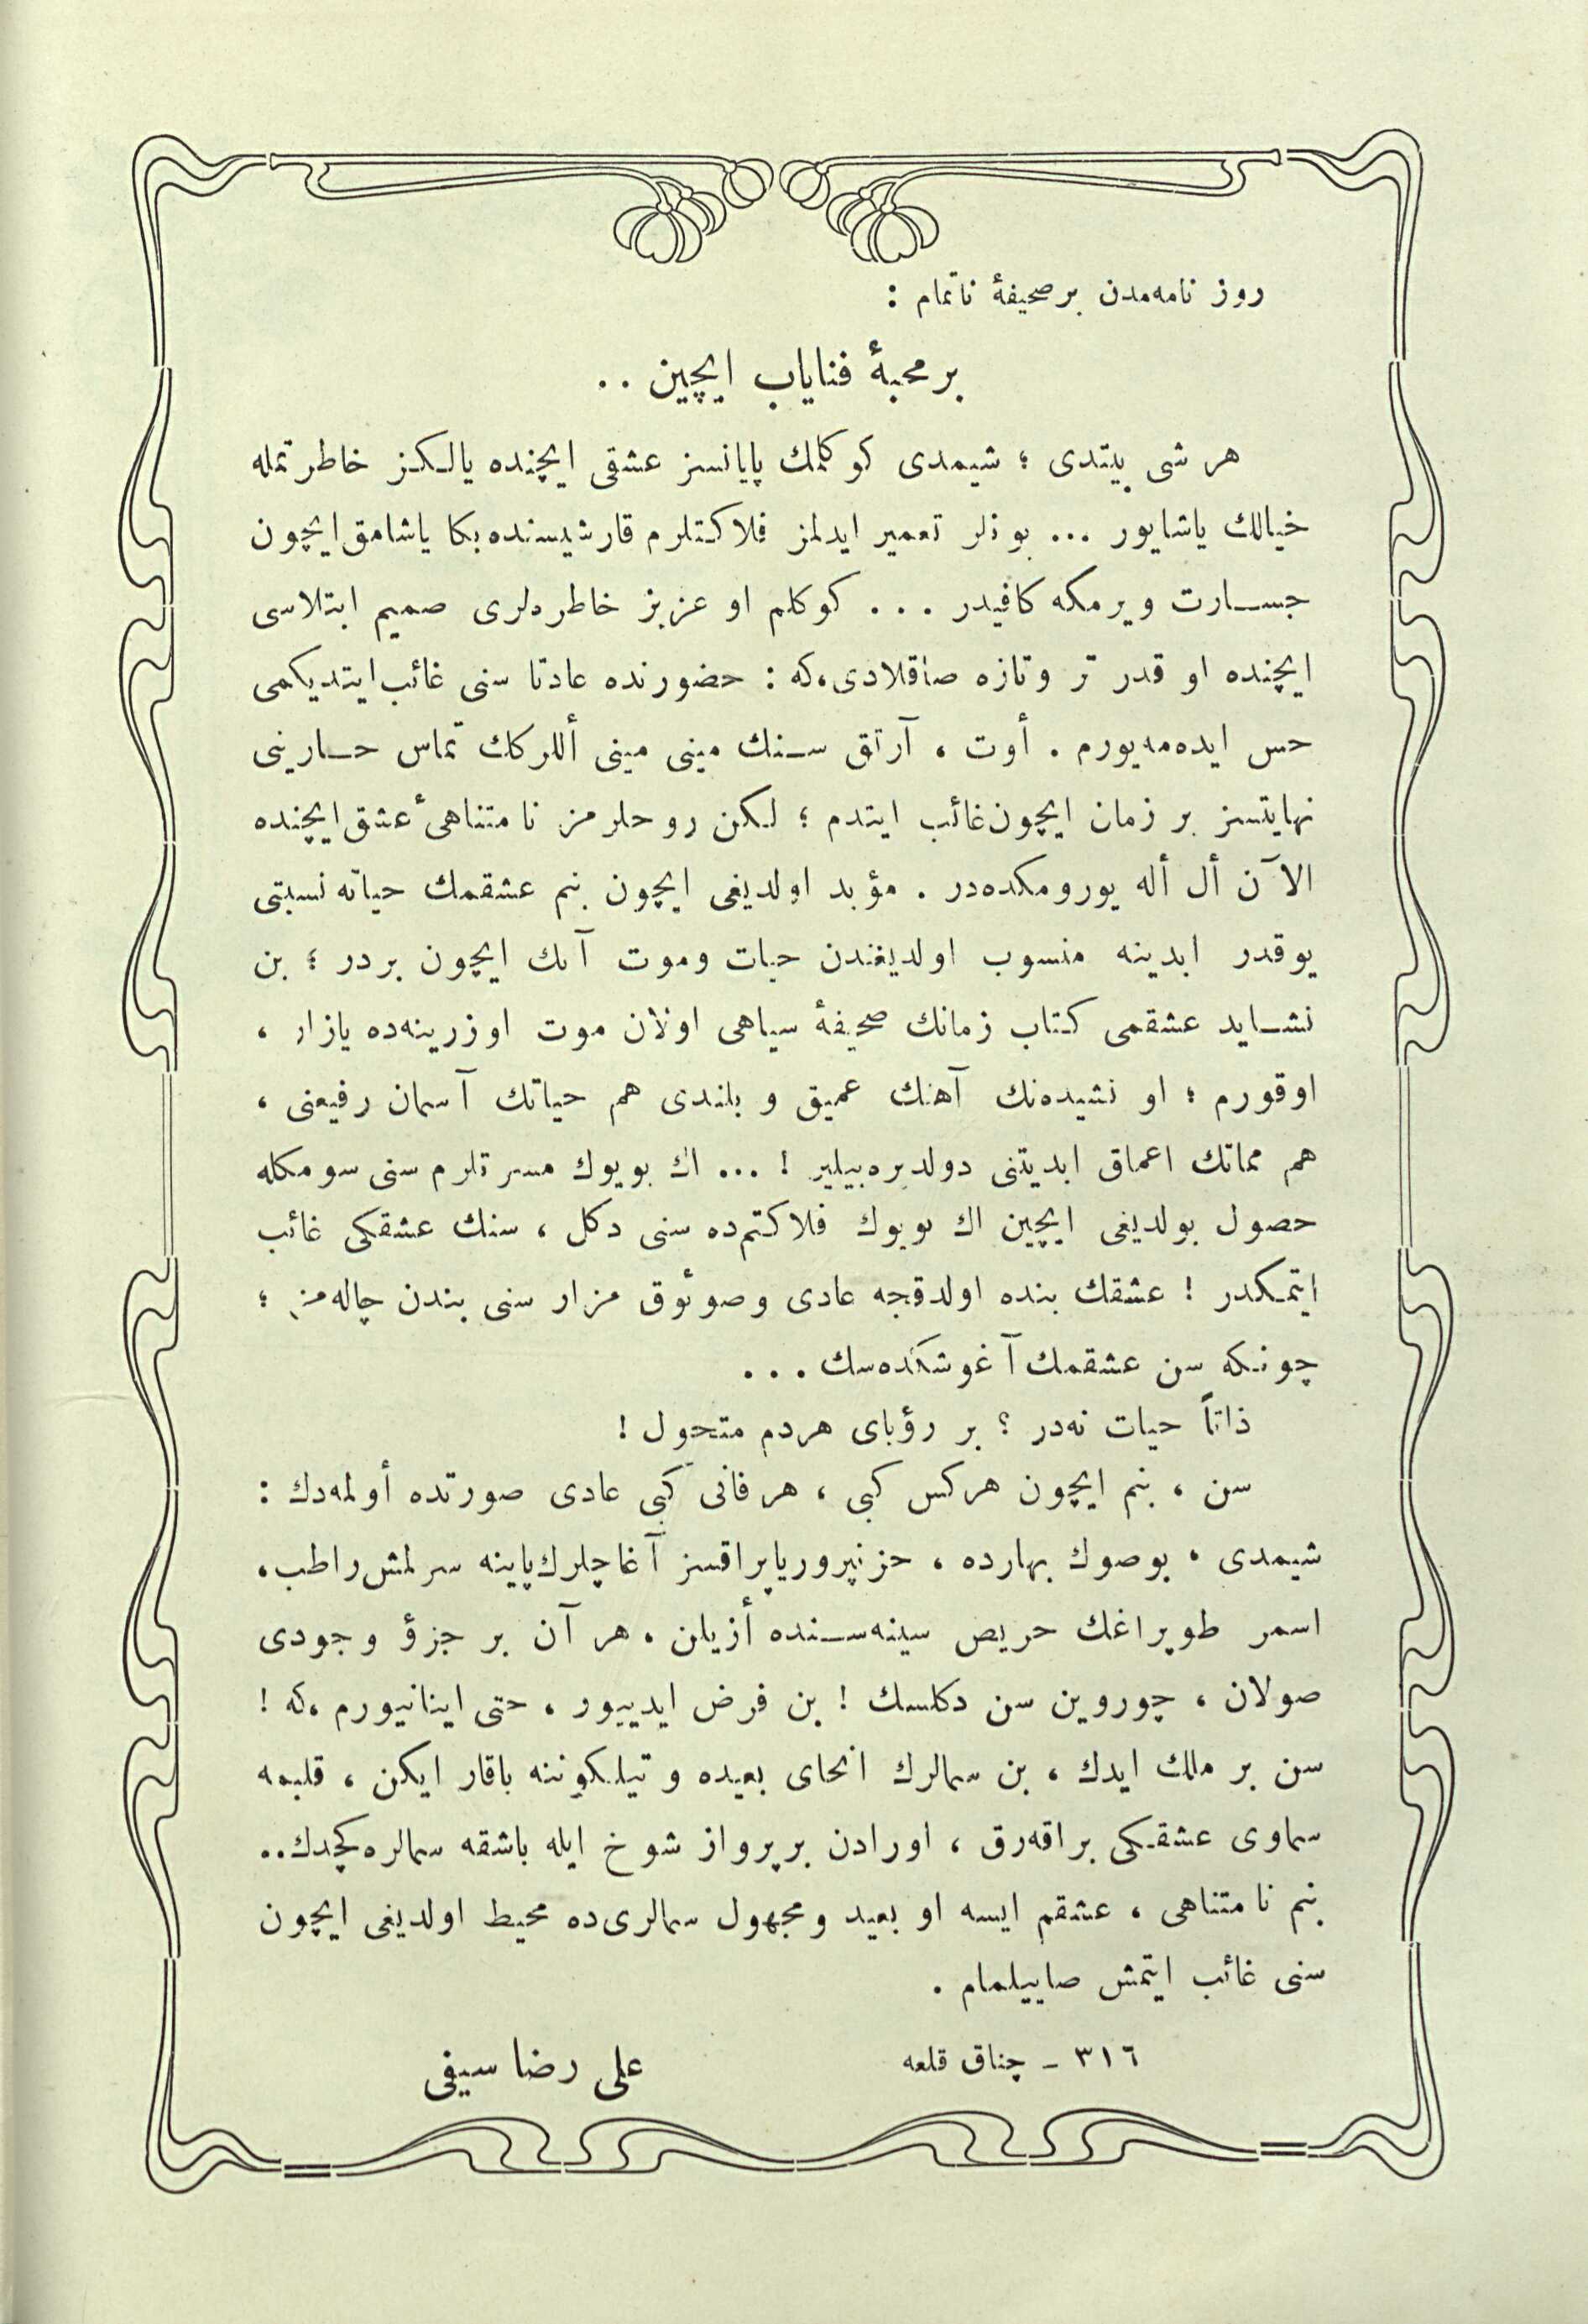 روز نامه‌مدن بر صحیفهٔ ناتمام :
بر محبهٔ فنایاب ایچین ..
هر شی بیتدی ؛ شیمدی کوکلمك پایانسز عشقی ایچنده یالکز خاطرتمله
خیالك یاشایور ... بونلر تعمیر ایدلمز فلاکتلرم قارشیسنده بکا یاشامق ایچون
جسارت ویرمکه کافیدر ... کوکلم او عزیز خاطره‌لری صمیم ابتلاسی
ایچنده او قدر تر وتازه صاقلادی،که : حضورنده عادتا سنی غائب ایتدیکمی
حس ایده‌مه‌یورم . أوت ، آرتق سنك مینی مینی أللرکك تماس حارینی
نهایتسز بر زمان ایچون غائب ایتدم ؛ لکن روحلرمز نامتناهیٔ عشق ایچنده
الآن أل أله یورومکده‌در . مؤبد اولدیغی ایچون بنم عشقمك حیاته نسبتی
یوقدر ابدینه منسوب اولدیغندن حیات وموت آنك ایچون بردر ؛ بن
نشاید عشقمی کتاب زمانك صحیفهٔ سیاهی اولان موت اوزرینه‌ده یازار ،
اوقورم ؛ او نشیده‌نك آهنك عمیق و بلندی هم حیاتك آسمان رفیعنی ،
هم مماتك اعماق ابدیتنی دولدیره‌بیلیر ! ... اك بویوك مسرتلرم سنی سومکله
حصول بولدیغی ایچین اك بویوك فلاکتم‌ده سنی دکل ، سنك عشقکی غائب
ایتمکدر ! عشقك بنده اولدقجه عادی وصوئوق مزار سنی بندن چاله‌مز ؛
چونکه سن عشقمك آغوشکده‌سك ...
ذاتاً حیات نه‌در ؟ بر رؤیای هردم متحول !
سن ، بنم ایچون هرکس کبی ، هر فانی کبی عادی صورتده أولمه‌دك :
شیمدی ، بوصوك بهارده ، حزنپرور یاپراقسز آغاچلرك پاینه سرلمش راطب،
اسمر طوپراغك حریص سینه‌سنده أزیلن ، هر آن بر جزؤ وجودی
صولان ، چوروین سن دکلسك ! بن فرض ایدییور ، حتی اینانیورم ،که !
سن بر ملك ایدك ، بن سمالرك انحای بعیده و نیلکوننه باقار ایکن ، قلبمه
سماوی عشقکی براقه‌رق ، اورادن بر پرواز شوخ ایله باشقه سمالره کچدك..
بنم نامتناهی ، عشقم ایسه او بعید ومجهول سمالری‌ده محیط اولدیغی ایچون
سنی غائب ایتمش صاییلمام .
٣١٦ - چناق قلعه
علی رضا سیفی